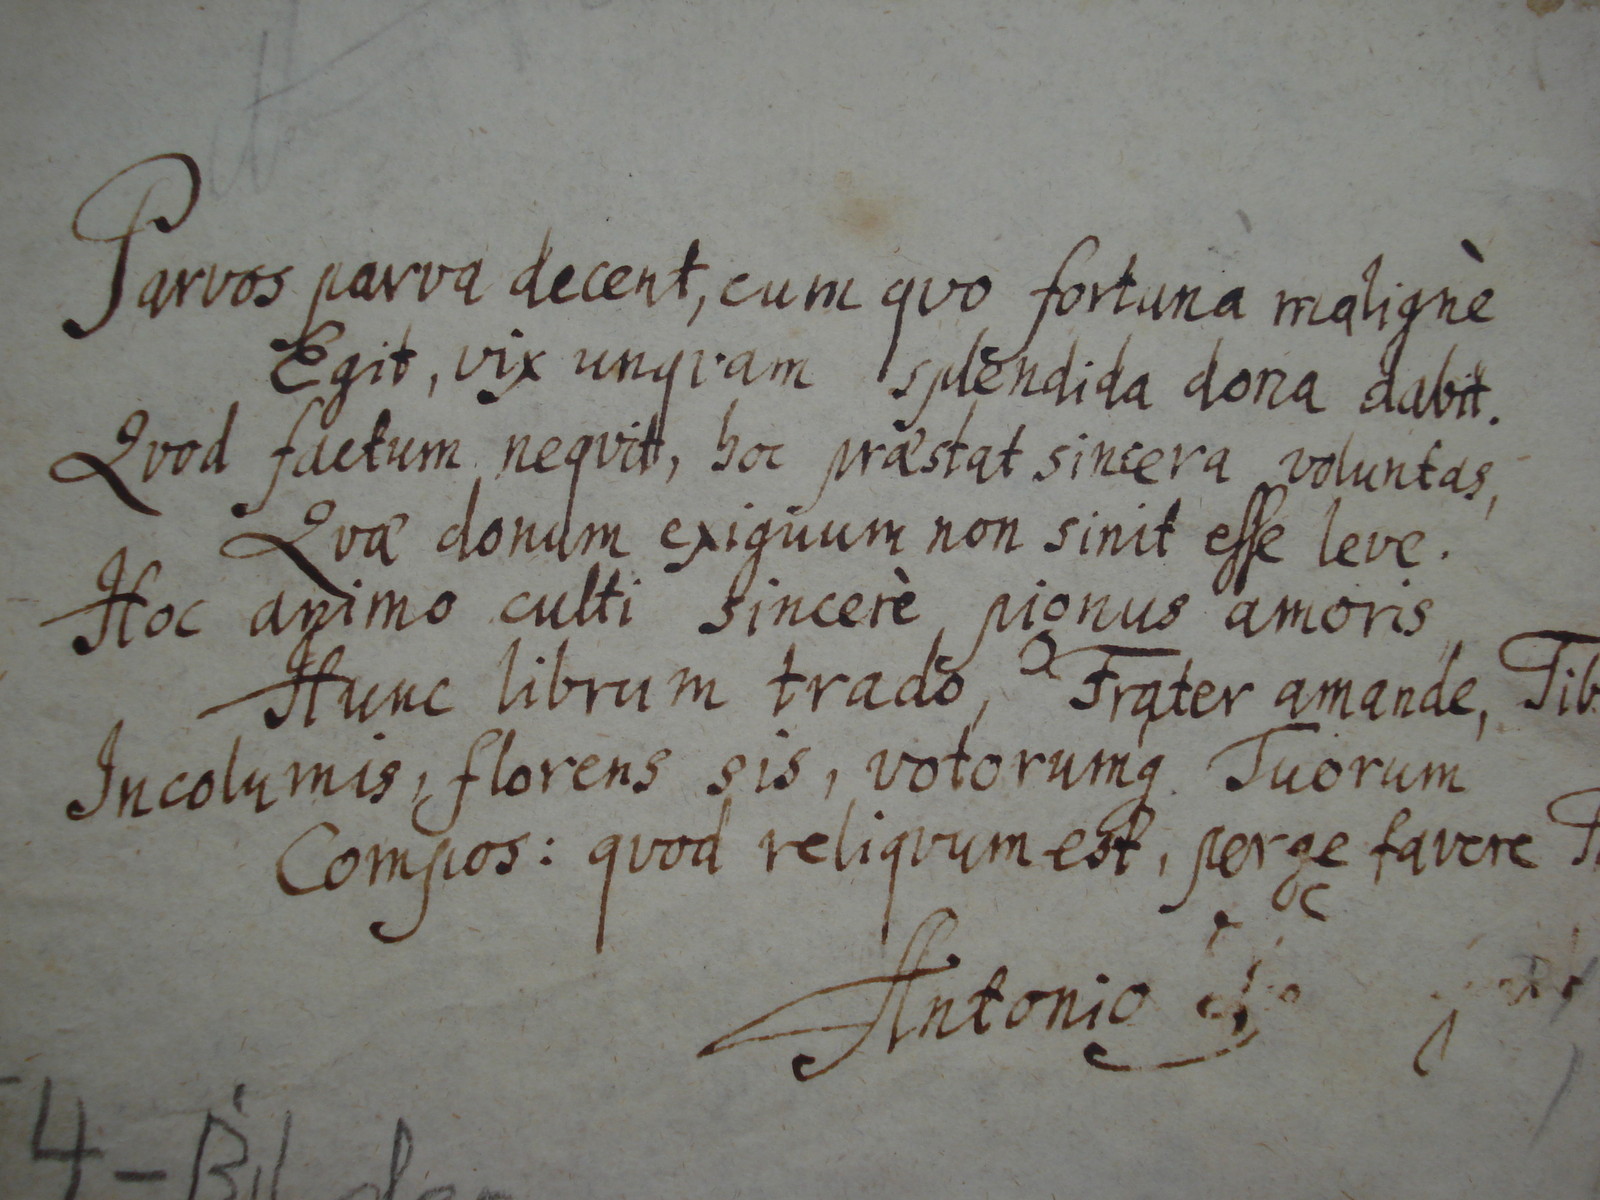 Parvos parva decent, cum quo fortuna malignè
Egit, vix unqvam splendida dona dabit.
Qvod factum neqvit, hoc præstat sincera voluntas,
Qvæ donum exiguum non sinit esse leve.
Hoc animo culti sincerè pignus amoris
Hunc librum trado, ô Frater amande, Tib
Incolumis, florens sis, votorumq Tuorum
Compos: quod reliqvum est, perge favere
Antonio
4 - Bil